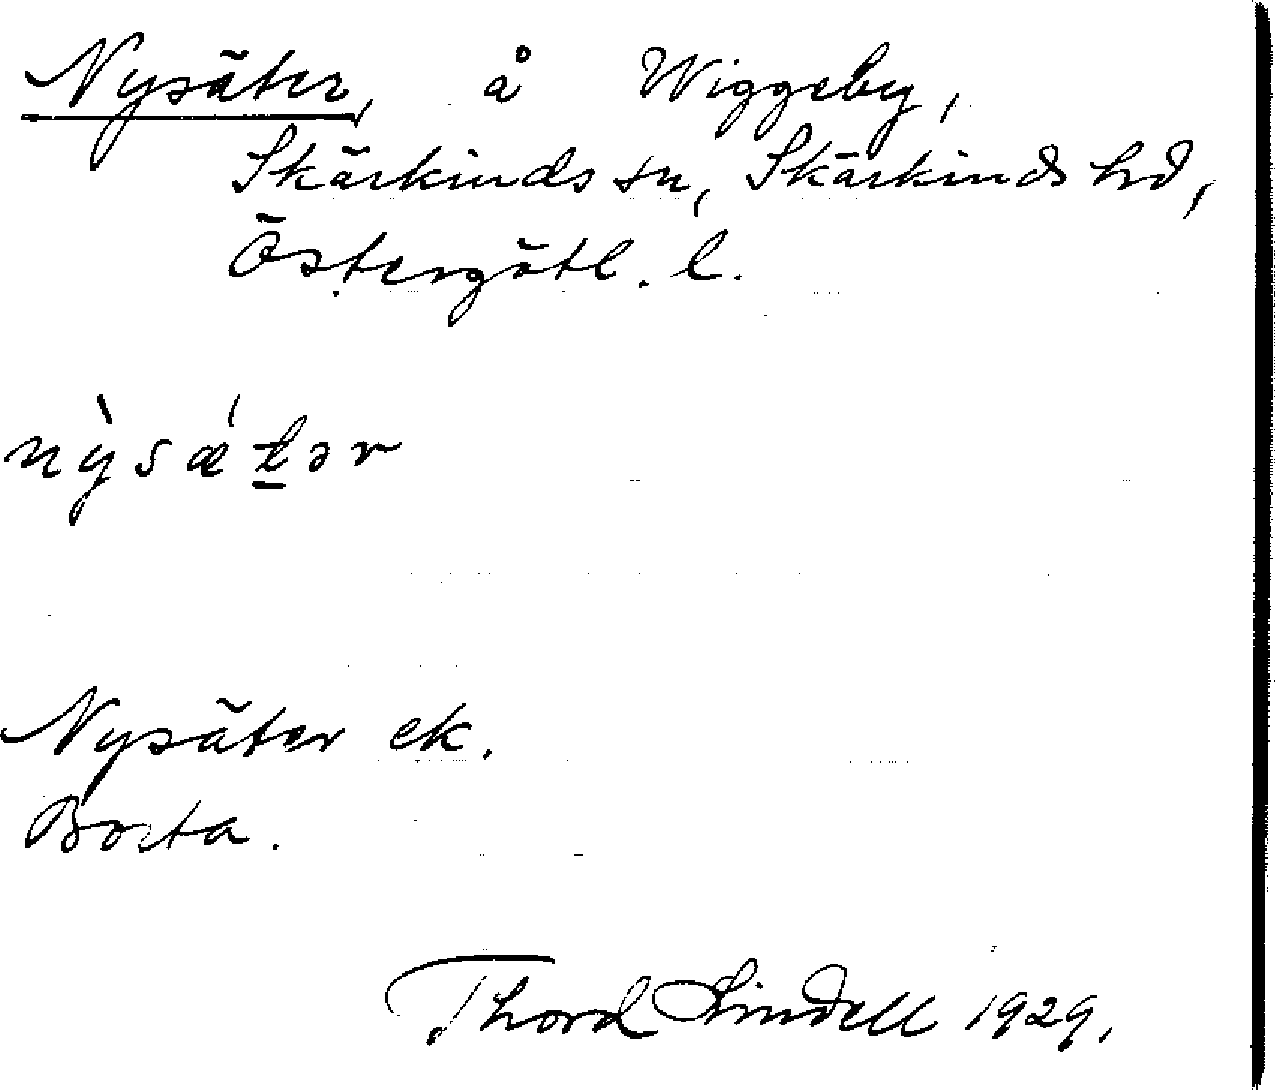 Nysäter, å Wiggeby,
Skärkinds sn, Skärkinds hd,
Östergötl. l.
nỳsǽt̲ər
Nysäter ek.
Borta.
Thord Lindell 1929.